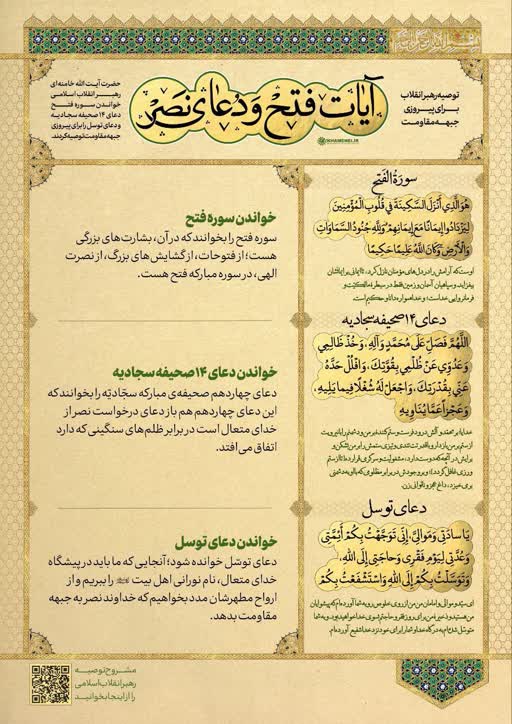 توصیه رهبر انقلاب
برای پیروزی
جبهه مقاومت
آیات فتح و دعای نصر
KHAMENEI.IR
حضرت آیت الله خامنه‌ای
رهبر انقلاب اسلامی
خواندن سوره فتح
دعای ۱۴ صحیفه سجادیه
و دعای توسل را برای پیروزی
جبهه مقاومت توصیه کردند.
سورةُ الفَتح
هُوَ الَّذِي أَنْزَلَ السَّكِينَةَ فِي قُلُوبِ الْمُؤْمِنِينَ
لِيَزْدَادُوا إِيمَانًا مَعَ إِيمَانِهِمْ وَلِلَّهِ جُنُودُ السَّمَاوَاتِ
وَالْأَرْضِ وَكَانَ اللَّهُ عَلِيمًا حَكِيمًا
اوست که آرامش را در دل‌های مؤمنان نازل کرد، تا ایمانی بر ایمانشان
بیفزاید و سپاهیان آسمان و زمین فقط در سیطره مالکیّت و
فرمانروایی خداست؛ و خدا همواره دانا و حکیم است.
خواندن سوره فتح
سوره فتح را بخوانند که در آن، بشارت‌های بزرگی
هست؛ از فتوحات، از گشایش‌های بزرگ، از نصرت
الهی، در سوره مبارکه فتح هست.
دعای ۱۴ صحیفه سجادیه
اللَّهُمَّ فَصَلِّ عَلَى مُحَمَّدٍ وَآلِهِ، وَخُذْ ظَالِمِي
وَعَدُوِّي عَنْ ظُلْمِي بِقُوَّتِكَ، وَافْلُلْ حَدَّهُ
عَنِّي بِقُدْرَتِكَ، وَاجْعَلْ لَهُ شُغْلًا فِيمَا يَلِيهِ،
وَعَجْزًا عَمَّا يُنَاوِيهِ
خواندن دعای ۱۴ صحیفه سجادیه
دعای چهاردهم صحیفه‌ی مبارکه سجّادیّه را بخوانند که
این دعای چهاردهم هم باز دعای درخواست نصر از
خدای متعال است در برابر ظلم‌های سنگینی که دارد
اتفاق می‌افتد.
دعای توسل
يَا سَادَتِي وَمَوَالِيَّ، إِنِّي تَوَجَّهْتُ بِكُمْ أَئِمَّتِي
وَعُدَّتِي لِيَوْمِ فَقْرِي وَحَاجَتِي إِلَى اللهِ،
وَتَوَسَّلْتُ بِكُمْ إِلَى اللهِ وَاسْتَشْفَعْتُ بِكُمْ
خواندن دعای توسل
دعای توسّل خوانده شود؛ آنجایی که ما باید در پیشگاه
خدای متعال، نام نورانی اهل بیت را ببریم و از
ارواح مطهرشان مدد بخواهیم که خداوند نصر به جبهه
مقاومت بدهد.
مشروح توصیه
رهبر انقلاب اسلامی
را از اینجا بخوانید